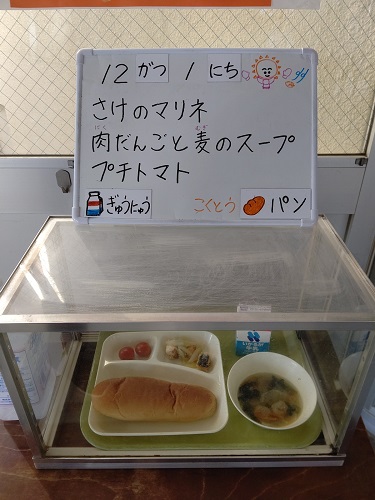 12 がつ 1 にち
さけのマリネ
肉だんごと麦のスープ
プチトマト
ぎゅうにゅう こくとう パン